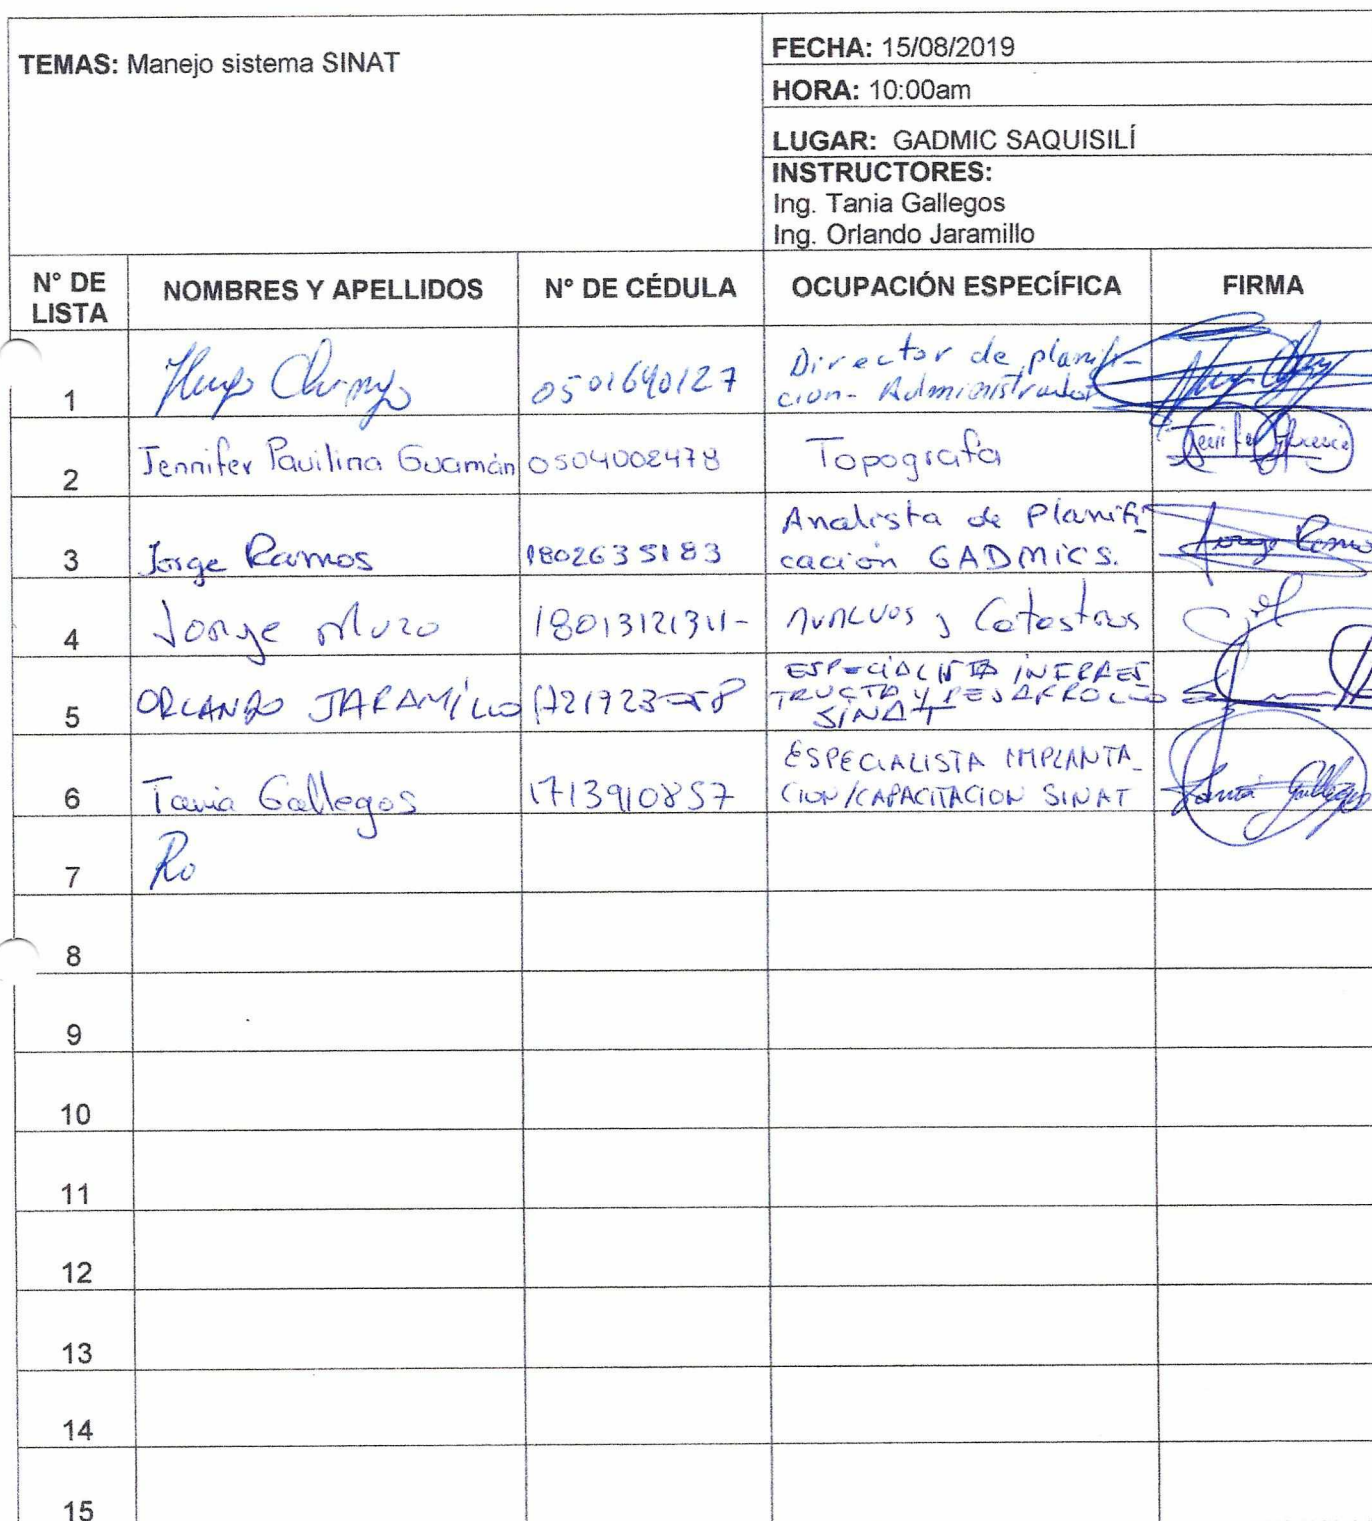 TEMAS: Manejo sistema SINAT
FECHA: 15/08/2019
HORA: 10:00am
LUGAR: GADMIC SAQUISILÍ
INSTRUCTORES:
Ing. Tania Gallegos
Ing. Orlando Jaramillo
N° DE LISTA NOMBRES Y APELLIDOS N° DE CÉDULA OCUPACIÓN ESPECÍFICA FIRMA
1 Hugo 0501640127 Director de planifi-
cion- Administrador
2 Jennifer Paulina Guamán 0504002478 Topografa Jennifer
3 Jorge Ramos 1802635183 Analista de Planifi-
cación GADMICS. Jorge Ramos
4 Jorge y
5 ORLANDO JARAMILLO ESPECIALISTA INFRAES
TRUCTA Y DESARROLLO
SINAT
6 Tania Gallegos 1713910857 ESPECIALISTA IMPLANTA_
CION/CAPACITACION SINAT Tania Gallegos
7 Ro
8
9
10
11
12
13
14
15